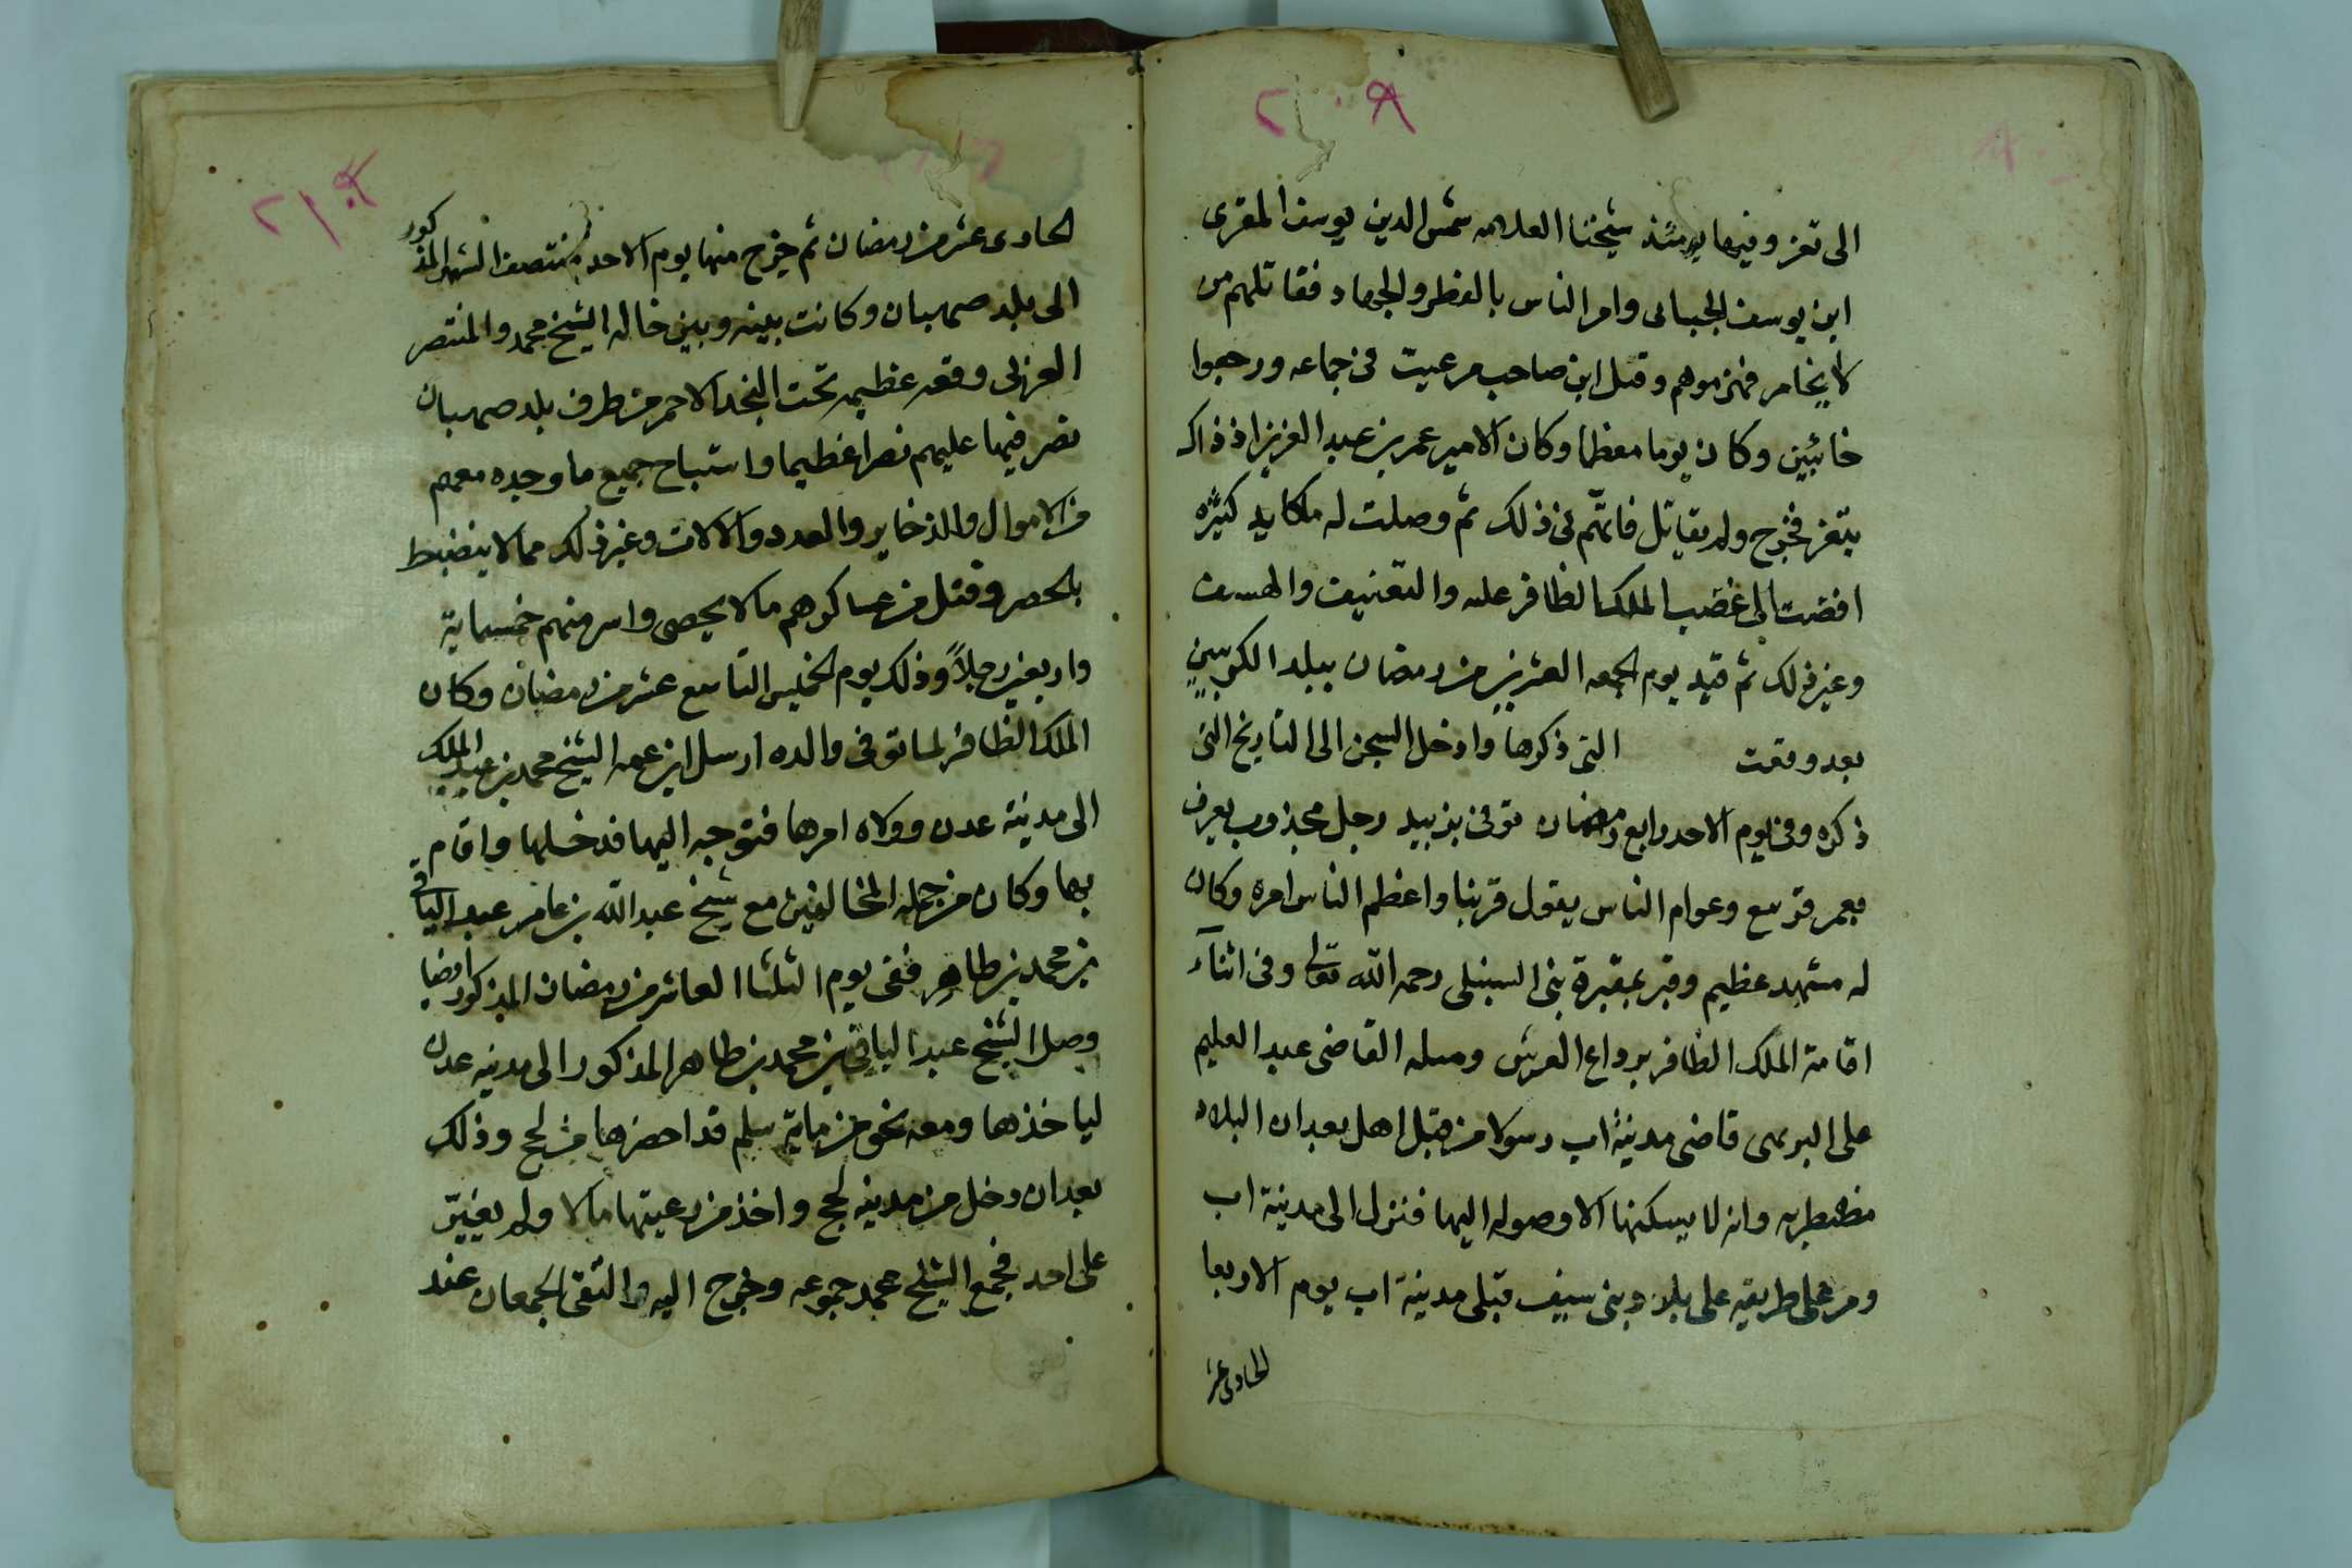 ٢٠٩
الى تعز وفيها يومئذ شيخنا العلامه شمس الدين يوسف المقرى
ابن يوسف الجبائى وامر الناس بالفطر والجهاد فقاتلهم من
لا يخامر فهزموهم وقتل ابن صاحب مرعيت فى جماعه ورجعوا
خائبين وكان يوما معظما وكان الامير عمر بن عبد العزيز اذ ذاك
بتعز فخرج ولم يقاتل فاتهم فى ذلك ثم وصلت له مكايد كثيره
افضت الى غضب الملك الظافر عليه والتعنيف
وغير ذلك ثم قيد يوم الجمعه العشرين من رمضان ببلد
بعد وقعت التى ذكرها وادخل السجن الى التاريخ التى
ذكره وفى يوم الاحد رابع رمضان توفى بزبيد رجل مجذوب يعرف
بعمر وعوام الناس يقول قربنا واعظم الناس امره وكان
له مشهد عظيم وقبر بمقبرة بنى السبنلى رحمه الله تعالى وفى اثناء
اقامة الملك الظافر برداع العرش وصله القاضى عبد العليم
على البريهى قاضى مدينة اب رسولا من قبل اهل بعدان البلاد
مضطربه وانه لا يسكنها الا وصوله اليها فنزل الى مدينة اب
ومر على طريقه على بلاد بنى سيف قبلى مدينة اب يوم الاربعا
الحادى عشر
٢١٠
الحادى عشر من رمضان ثم خرج منها يوم الاحد منتصف الشهر المذكور
الى بلد صهبان وكانت بينه وبين خاله الشيخ محمد والمنتصر
العزلى وقعه عظيمه تحت النجد الاحمر من طرف بلد صهبان
نصر فيها عليهم نصرا عظيما واستباح جميع ما وجده معهم
من الاموال والذخاير والعدد والالات وغير ذلك مما لا ينضبط
بالحصر وقتل من عساكرهم ما لا يحصى واسر منهم خمسماية
واربعين رجلاً وذلك يوم الخميس التاسع عشر من رمضان وكان
الملك الظافر لما توفى والده ارسل ابن عمه الشيخ محمد بن عبد الملك
الى مدينة عدن وولاه امرها فتوجه اليها فدخلها واقام
بها وكان من جمله المخالفين مع شيخ عبد الله بن عامر عبد الباقى
بن محمد بن طاهر ففى يوم الثلثا العاشر من رمضان المذكور ايضا
وصل الشيخ عبد الباقى بن محمد بن طاهر المذكور الى مدينه عدن
لياخذها ومعه نحو من ماية سلم قد احضرها من لحج وذلك
بعد ان دخل من مدينه لحج واخذ من رعيتها مالا ولم يغير
على احد فجمع الشيخ محمد جموعه وخرج اليه والتقى الجمعان عند